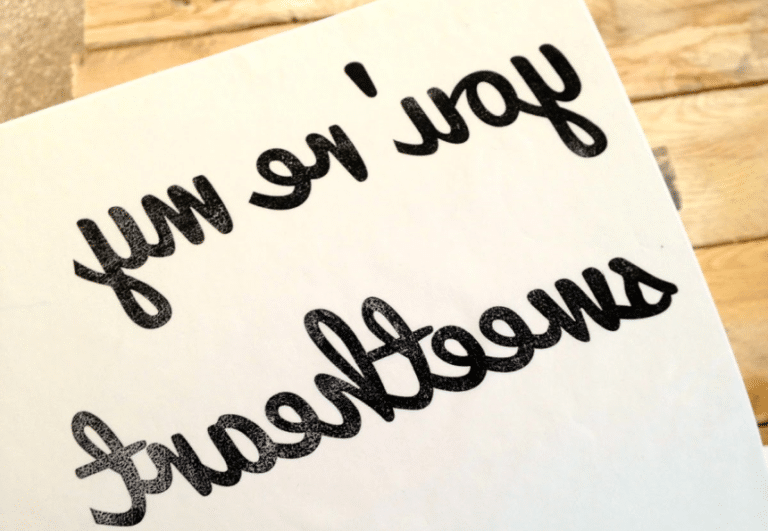 you're my
sweetheart